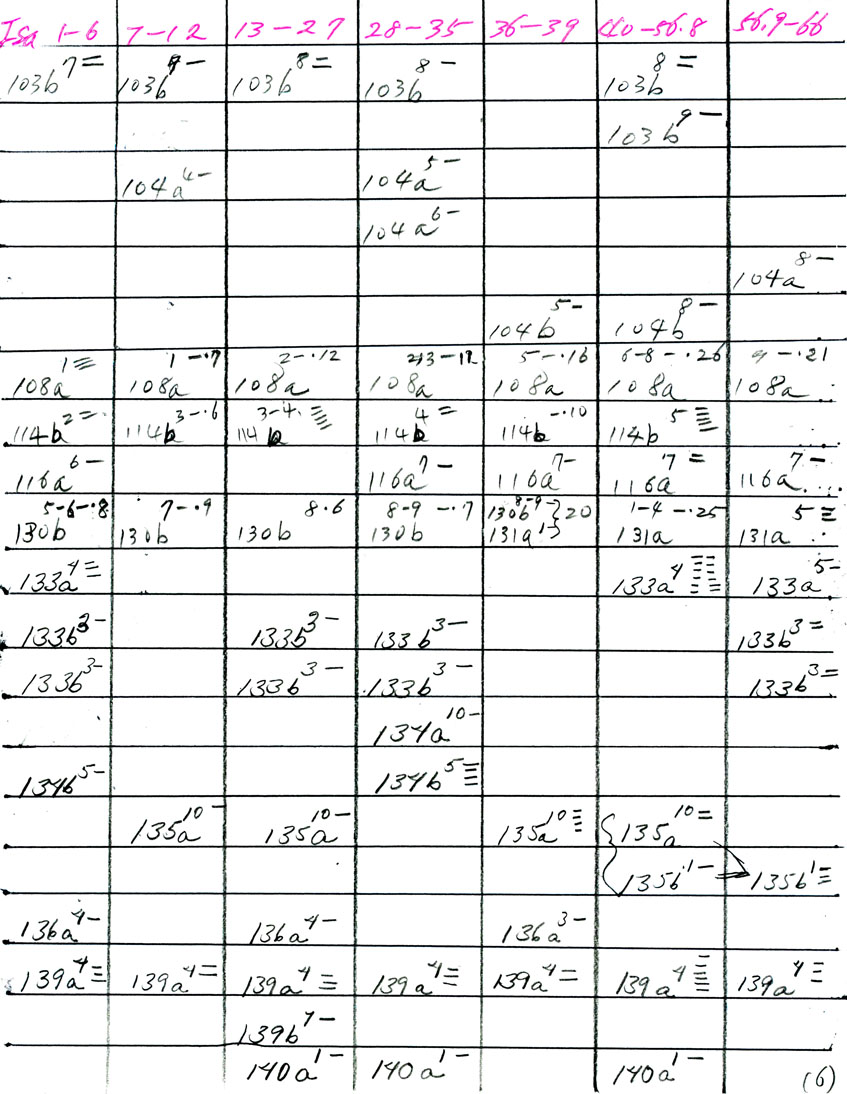 Isa 1-6 7-12 13-27 28-35 36-39 40-56.8 56.9-66
103b⁷= 103b – 103b⁸= 103b⁸– 103b⁸=
103b⁹–
104a⁴– 104a⁵–
104a⁶–
104a⁸–
104b⁵– 104b⁸–
1≡ 1-.7 2-.12 5-.16 6-8-.26 9-.21
108a 108a 108a 108a 108a 108a 108a
114b²= 114b³⁻·⁶ 114b³⁻⁴· 114b⁴= 114b⁻·¹⁰ 114b⁵
116a⁶– 116a⁷– 116a⁷– 116a⁷= 116a⁷–
5-6-.8 7-.9 8.6 8-9-.7 130b⁸⁻⁹ } 20 1-4-.25 5≡
130b 130b 130b 130b 131a¹ 131a 131a
133a⁴= 133a⁴ 133a⁵–
133b³– 133b³– 133b³– 133b³=
133b³– 133b³– 133b³– 133b³=
134a¹⁰–
134b⁵– 134b⁵≡
135a¹⁰– 135a¹⁰– 135a¹⁰≡ 135a¹⁰=
135b¹– 135b¹≡
136a⁴– 136a⁴– 136a³–
139a⁴≡ 139a⁴= 139a⁴≡ 139a⁴≡ 139a⁴= 139a⁴≡ 139a⁴≡
139b⁷–
140a¹– 140a¹– 140a¹– (6)